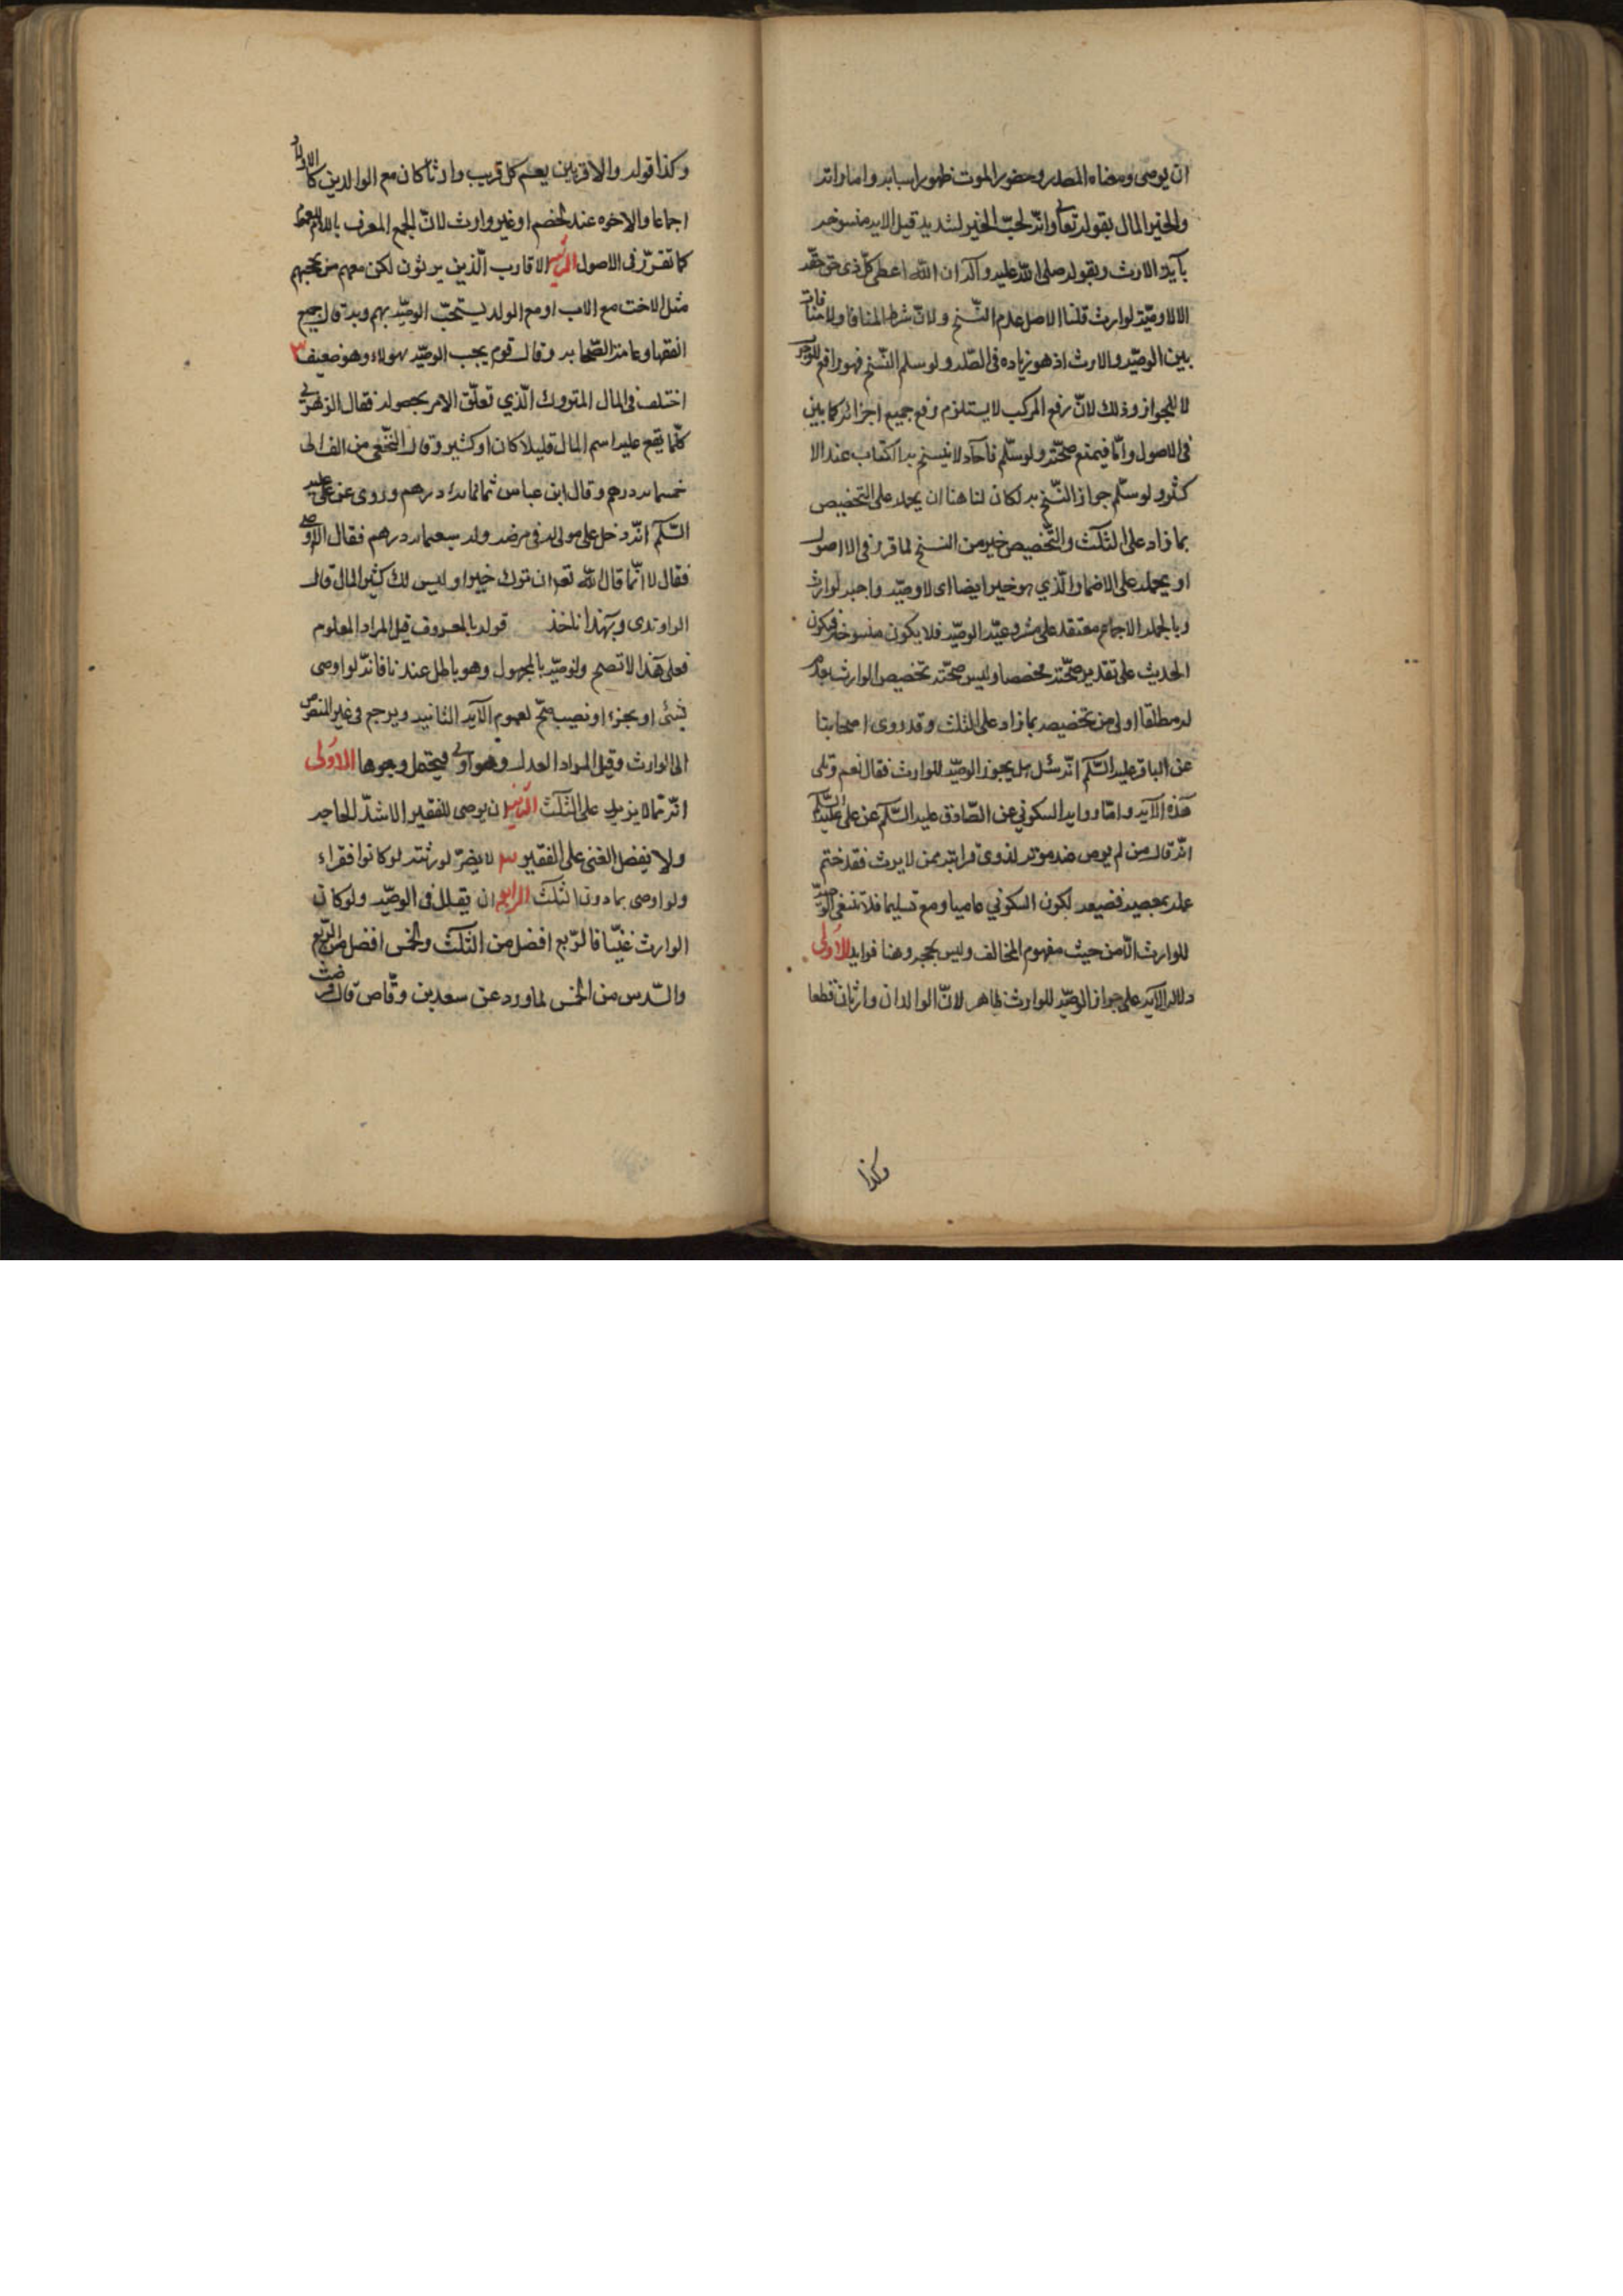 ان يوصى ومعناه المصدر وحضور الموت ظهور اسبابه واماراته
والخير المال بقوله تعالى وانّه لحبّ الخير لشديد قيل الايه منسوخه
بآية الارث وبقوله صلى الله عليه وآله ان الله اعطى كلّ ذى حق حقّه
الا لا وصيّة لوارث قلنا الاصل عدم النّسخ ولانّ شرط المنافاة ولا منافات
بين الوصيّه والارث اذ هو زياده فى الصّله ولو سلم النّسخ فهو رافع للوجوب
لا للجواز وذلك لانّ رفع المركب لا يستلزم رفع جميع اجزائه كما بين
فى الاصول وامّا فيمنع صحّته ولو سلّم فآحاد لا ينسخ به الكتاب عند الا
كثر ولو سلّم جواز النّسخ به لكان لنا هنا ان يحمله على التخصيص
بما زاد على الثلث والتّخصيص خير من النسخ لما قرر فى الاصول
او يحمله على الاضمار الّذي هو خير ايضا اى لا وصيّه واجبه لوارث
وبالجمله الاجماع منعقد على مشروعيّه الوصيّه فلا يكون منسوخه فيكون
الحديث على تقدير صحّته مخصصا وليس صحّته تخصيص الوارث بعدم
له مطلقا اولى من تخصيصه بما زاد على الثلث وقد روى اصحابنا
عن الباقر عليه السّلم انّه سئل هل يجوز الوصيّه للوارث فقال نعم وتلى
هذه الآيه وامّا روايه السكوني عن الصّادق عليه السّلم عن على عليه السّلم
انّه قال من لم يوص عند موته لذوى قرابته ممن لا يرث فقد ختم
عمله بمعصيه فضيعه لكون السكوني عاميا ومع تسليمها فلا تنفى الوصيّه
للوارث الّا من حيث مفهوم المخالفه وليس بحجه وهنا فوايد الاولى
دلاله الآيه على جواز الوصيّه للوارث ظاهر لانّ الوالدان وارثان قطعا
وكذا
وكذا قوله والاقربين يعم كل قريب وارثا كان مع الوالدين كالاولاد
اجماعا والاخوه عند الخصم او غير وارث لانّ الجمع المعرف باللام للعموم
كما تقرّر فى الاصول الثانيه الاقارب الّذين يرثون لكن معهم من يحجبهم
مثل الاخت مع الاب او مع الولد يستحبّ الوصيّه بهم وبه قال جميع
الفقها وعامّة الصّحابه وقال قوم يجب الوصيّه لهولاء وهو ضعيف ٣
اختلف فى المال المتروك الّذي تعلّق الامر بحصوله فقال الزهرى
كلّما يقع عليه اسم المال قليلا كان او كثير وقال النّخعى من الف الى
خمسمايه درهم وقال ابن عباس ثمانمايه درهم وروى عن على عليه
السّلم انّه دخل على مولى له فى مرضه وله سبعمايه درهم فقال الا اوصى
فقال لا انّما قال الله تعه ان ترك خيرا وليس لك كثير المال قال
الراوندى وبهذا ناخذ قوله بالمعروف قيل المراد المعلوم
فعلى هذا لا تصح الوصيّه بالمجهول وهو باطل عندنا فانّه لو اوصى
بشىء او بجزء او نصيب صحّ لعموم الآيه الثانيه ويرجع فى غير المنصوص
الى الوارث وقيل المراد العدل وهو اولى فيحتمل وجوها الاوّلى
انّه ممّا لا يزيد على الثّلث الثانيه ان يوصى للفقير الاشدّ للحاجه
ولا يفضل الغنى على الفقير ٣ لا يضرّ لورثته لو كانوا فقراء
ولو اوصى بما دون الثلث الرابع ان يقلل فى الوصيّه ولو كان
الوارث غنيّا فالرّبع افضل من الثّلث والخمس افضل من الرّبع
والسّدس من الخمس لما ورد عن سعد بن وقّاص قال مرضت